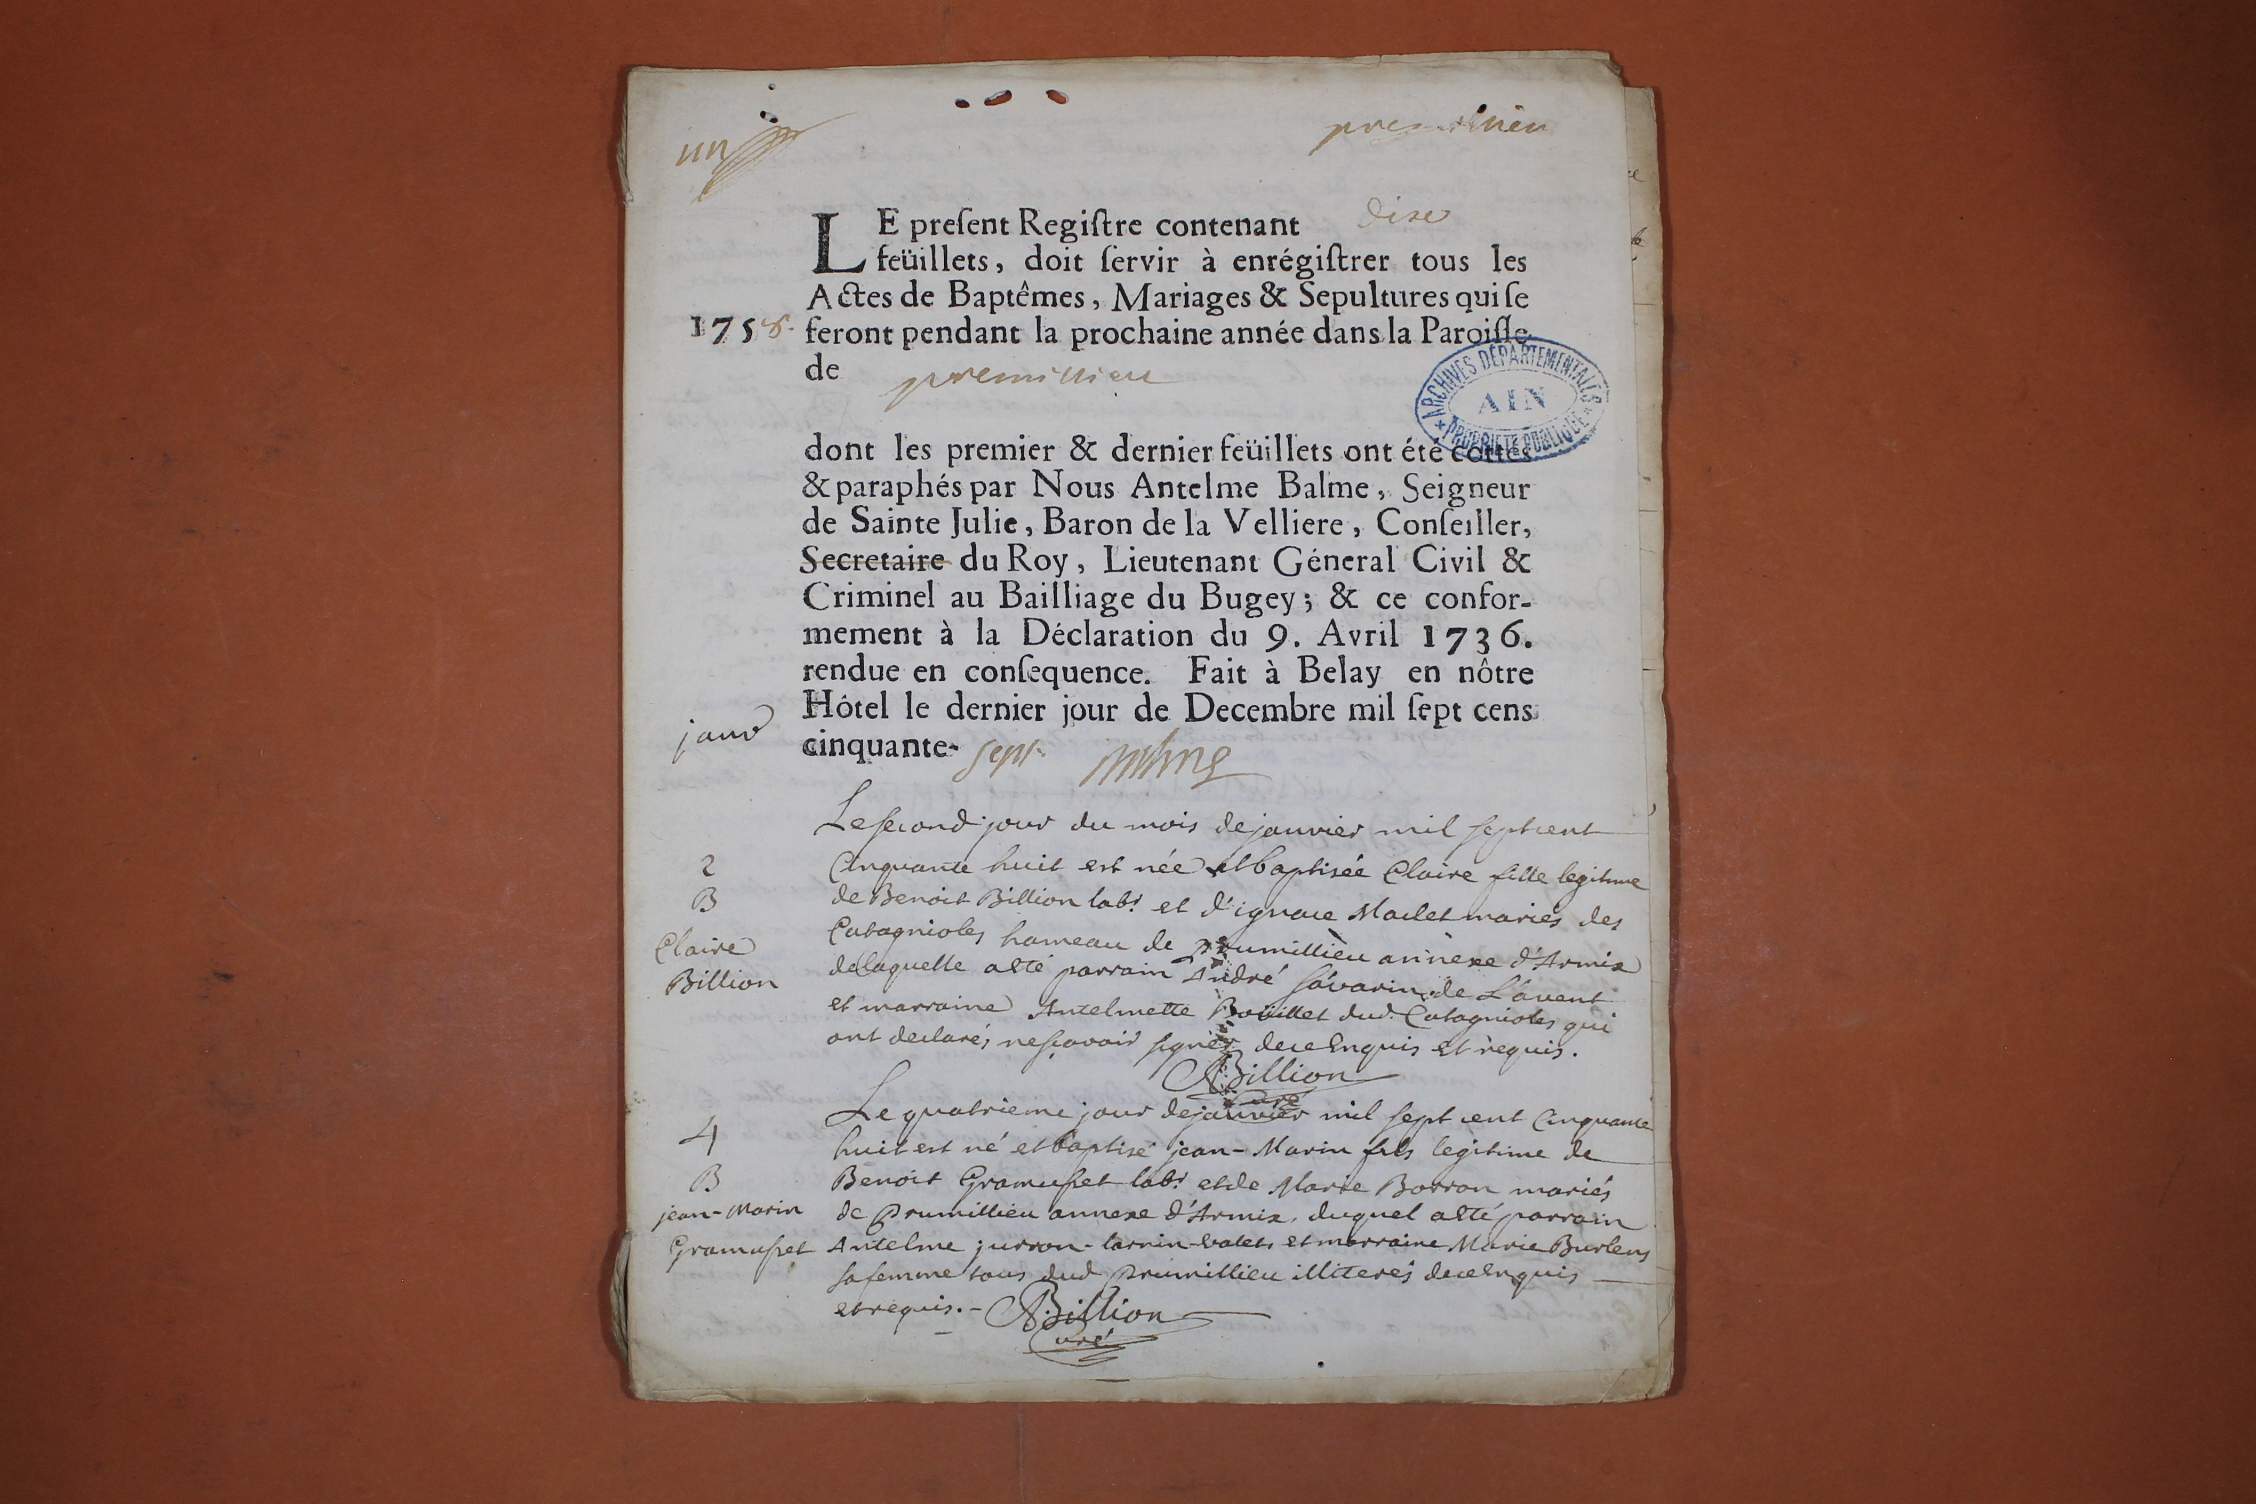 un
premillieu
dixe
LE preſent Regiſtre contenant
feüillets, doit ſervir à enrégiſtrer tous les
Actes de Baptêmes, Mariages & Sepultures qui ſe
1758. feront pendant la prochaine année dans la Paroiſſe
de premillieu
ARCHIVES DÉPARTEMENTALES
AIN
PROPRIÉTÉ PUBLIQUE
dont les premier & dernier feüillets ont été cottés
& paraphés par Nous Antelme Balme, Seigneur
de Sainte Julie, Baron de la Velliere, Conſeiller,
Secretaire du Roy, Lieutenant Géneral Civil &
Criminel au Bailliage du Bugey; & ce confor-
mement à la Déclaration du 9. Avril 1736.
rendue en conſequence. Fait à Belay en nôtre
Hôtel le dernier jour de Decembre mil ſept cens
janv cinquante- sept.
Le second jour du mois de janvier mil sept cent
2 Cinquante huit est née et baptisée Claire fille legitime
B de Benoit Billion labr et d'ignace Maclet mariés des
Claire Catagnioles hameau de prumillieu annexe d'Armix
Billion de laquelle a eté parrain André Savarin de L'avent
et marraine Antelmette Boüillet dud. Catagnioles qui
ont declarés ne sçavoir signer de ce Enquis et requis.
Billion
curé
Le quatrieme jour de janvier mil sept cent Cinquante
4 huit est né et baptisé jean-Marin fils legitime de
B Benoit Gramuset labr et de Marie Borron mariés
jean-Marin de Prumillieu annexe d'Armix. duquel a eté parrain
Gramuset Antelme jurron et marraine Marie Burlens
sa femme tous dud Prumillieu illiterés de ce Enquis
et requis. - Billion
curé